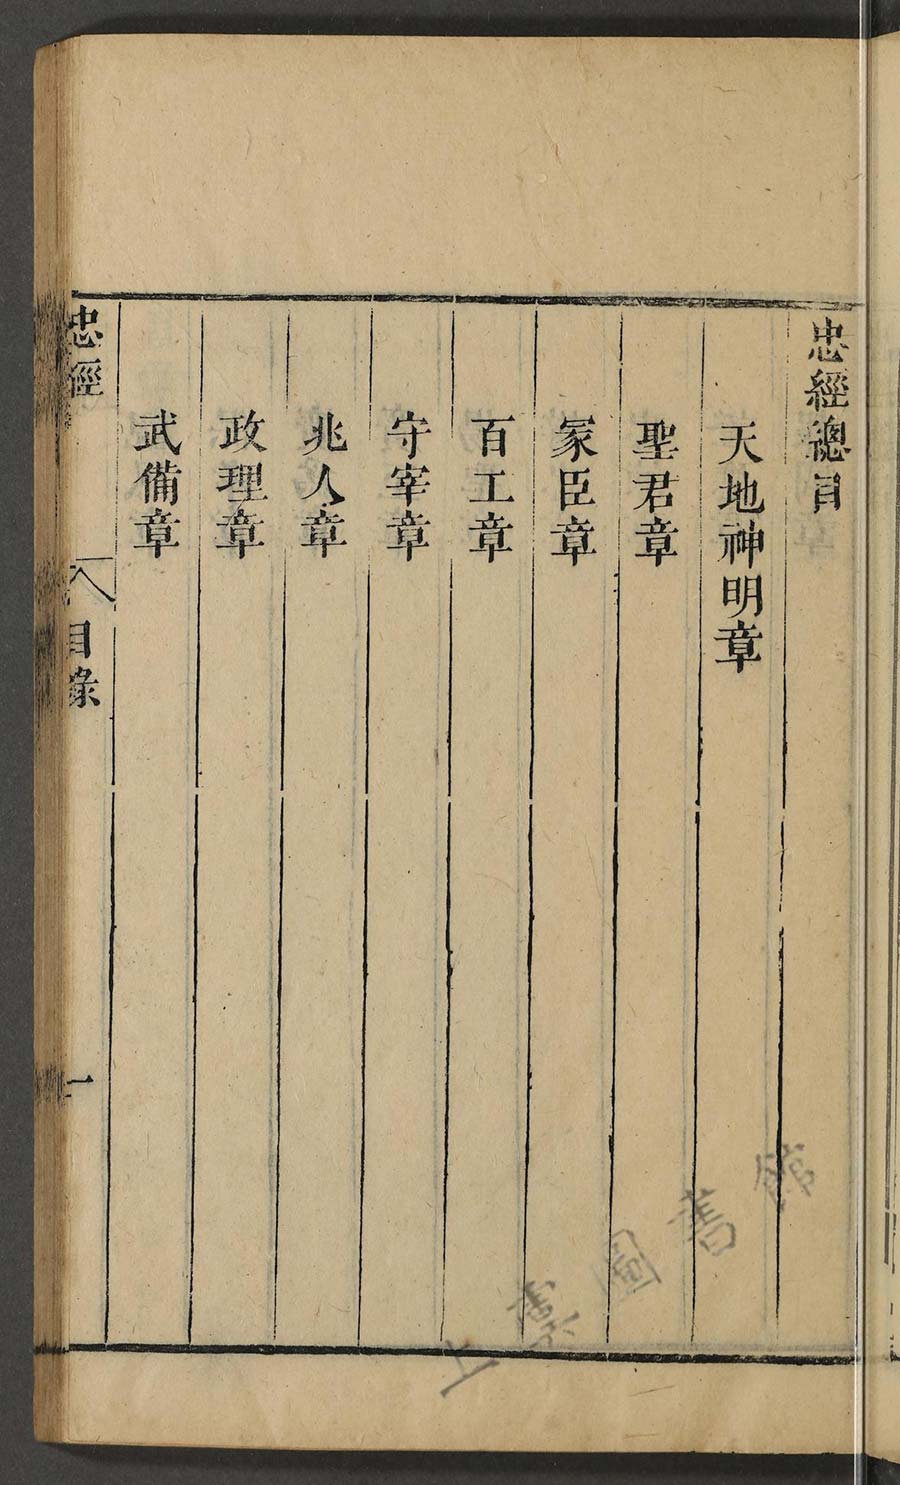 忠經總目
天地神明章
聖君章
冢臣章
百工章
守宰章
兆人章
政理章
武備章
忠經
目錄
一
上虞圖書館